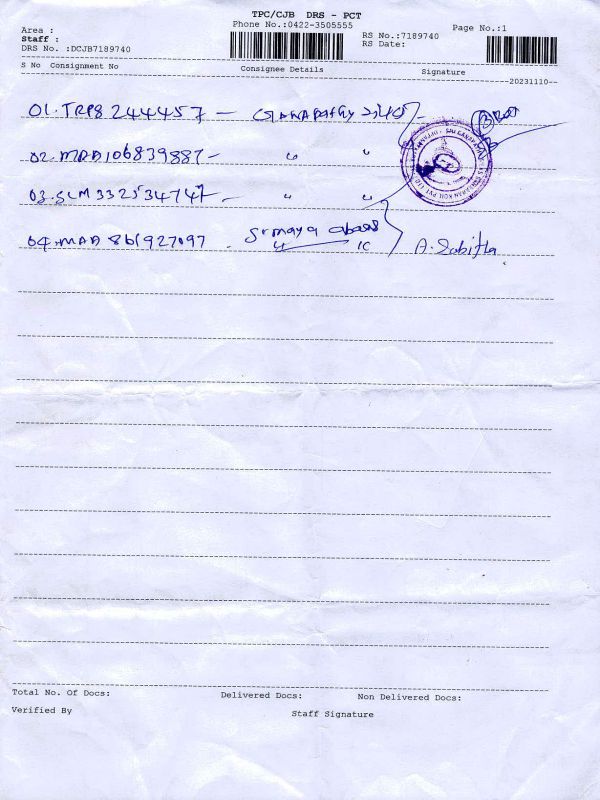 TPC/CJB DRS - PCT
Area :
Phone No.:0422-3505555
Page No.:1
Staff :
RS No.:7189740
DRS No. :DCJB7189740
RS Date:
S No Consignment No Consignee Details Signature
--20231110--
01. TRP8 244457 -
02. MAA106839887 -
03. SLM 332534747 -
04. MAA 861927097
A. Sabitha
Total No. Of Docs: Delivered Docs: Non Delivered Docs:
Verified By Staff Signature